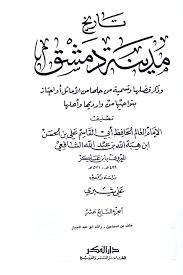 تاريخ
مدينة دمشق
وذكر فضلها وتسمية من حلها من الأماثل أو اجتاز
بنواحيها من وارديها وأهلها
تصنيف
الإمام العالم الحافظ أبي القاسم علي بن الحسن
ابن هبة الله بن عبد الله الشافعي
المعروف بابن عساكر
٤٩٩ هـ - ٥٧١ هـ
دراسة وتحقيق
علي شيري
الجزء السابع عشر
دار الفكر